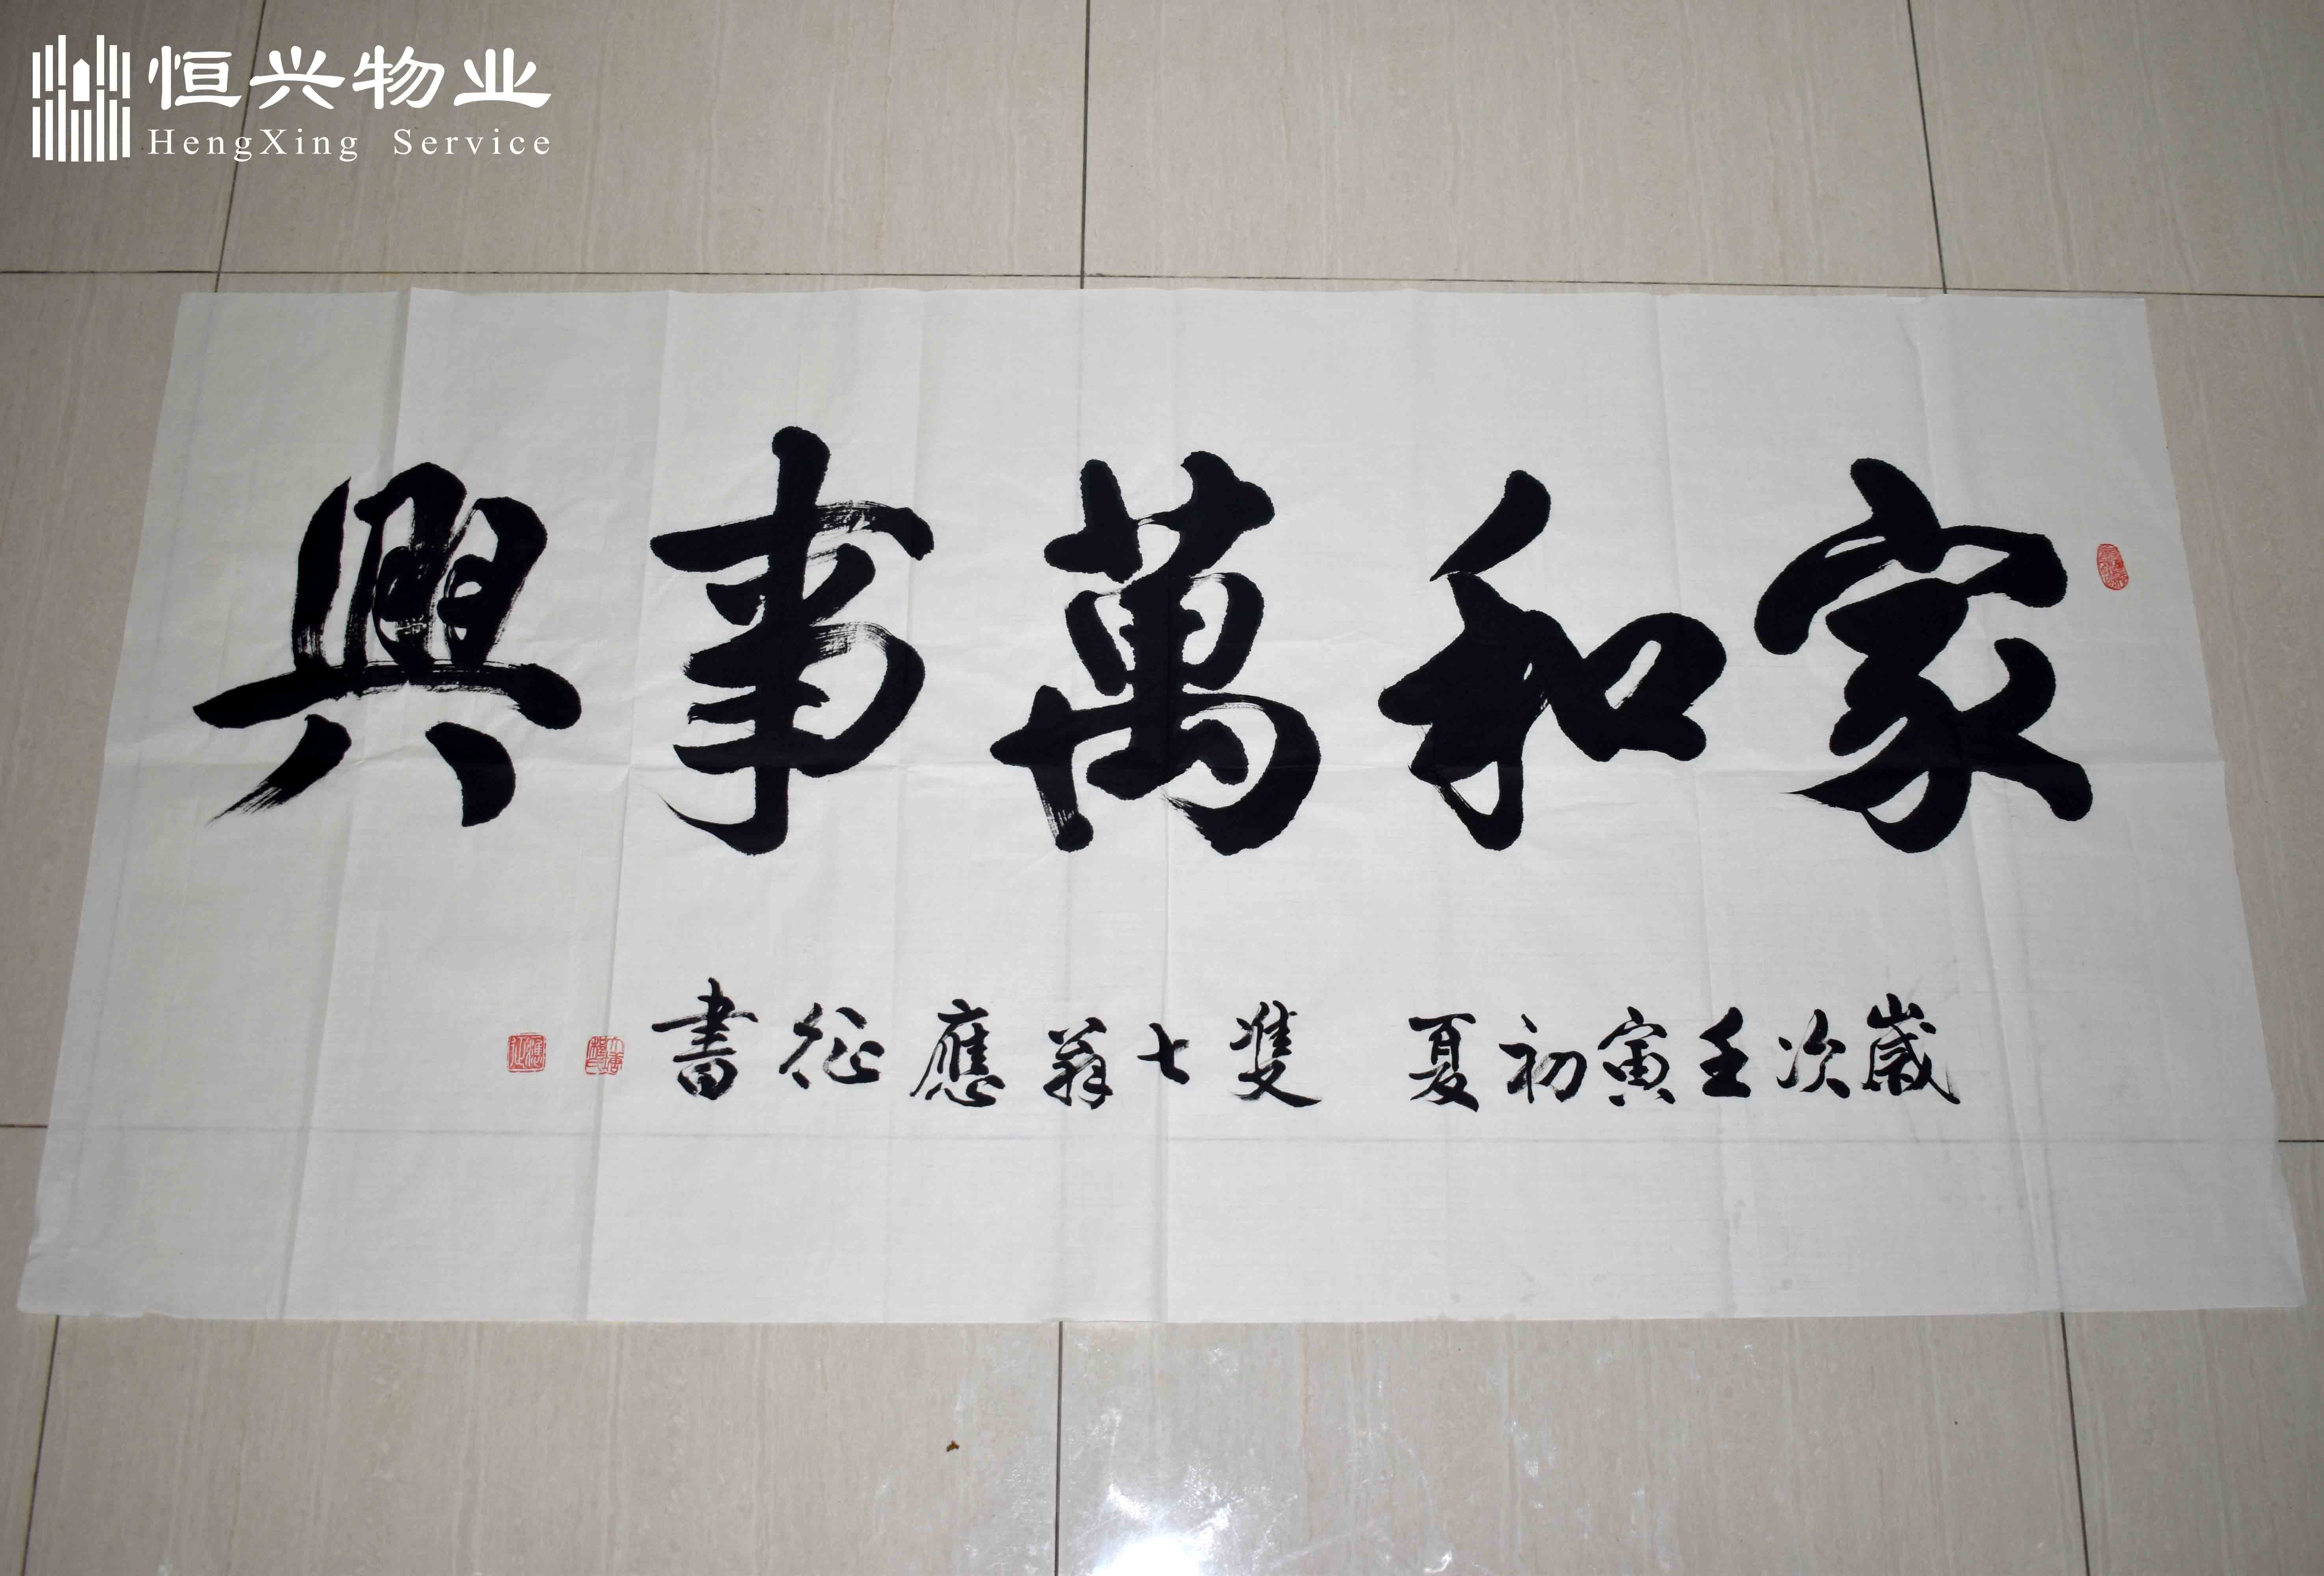 恒兴物业
HengXing Service
家和萬事興
歲次壬寅初夏 雙七翁應征書